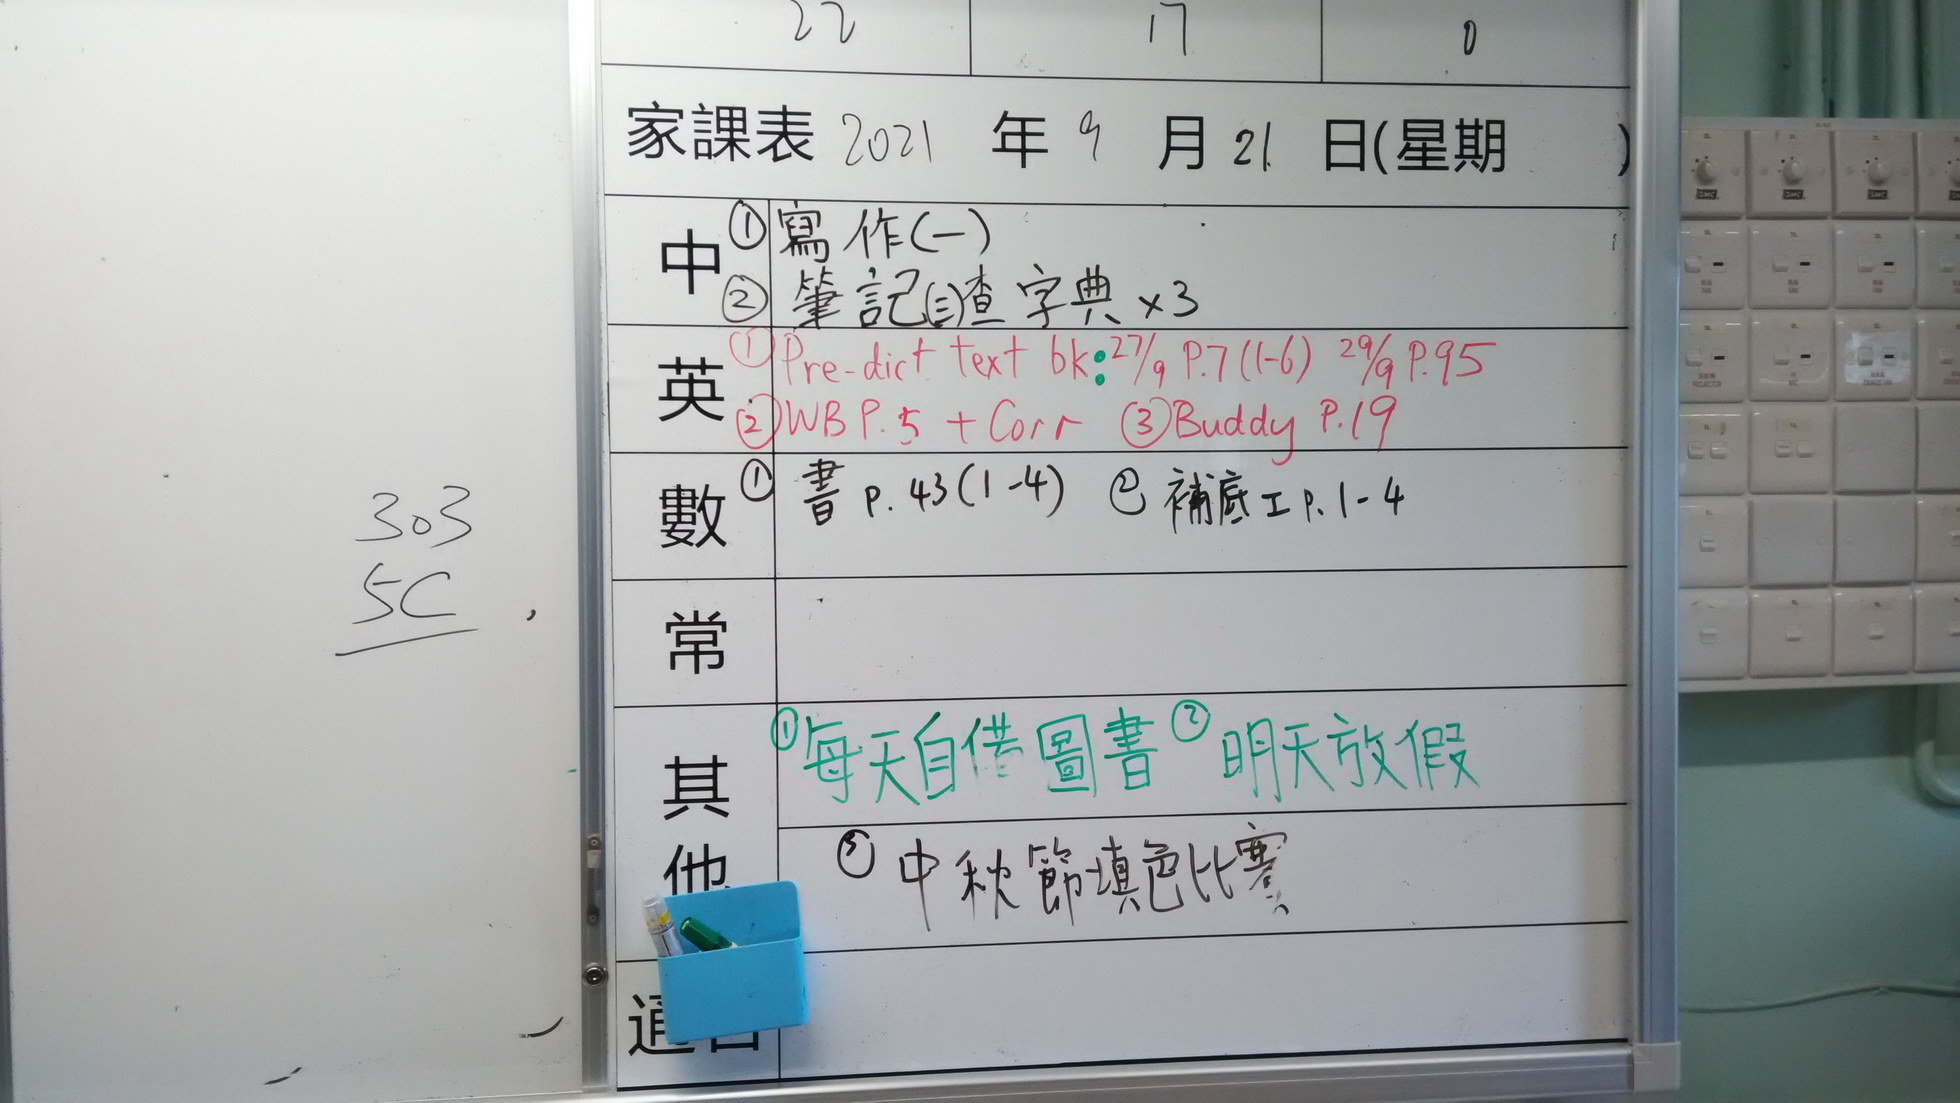 22 17 0
家課表 2021 年 9 月 21 日(星期 )
中 ① 寫作(一)
② 筆記(三)查字典 x3
英 ① Pre-dict text bk: 27/9 P.7 (1-6) 29/9 P.95
② WB P.5 + Corr ③ Buddy P.19
數 ① 書 p.43(1-4) ② 補底工 p.1-4
常
其他 ① 每天自借圖書 ② 明天放假
③ 中秋節填色比賽
通告
303
5C